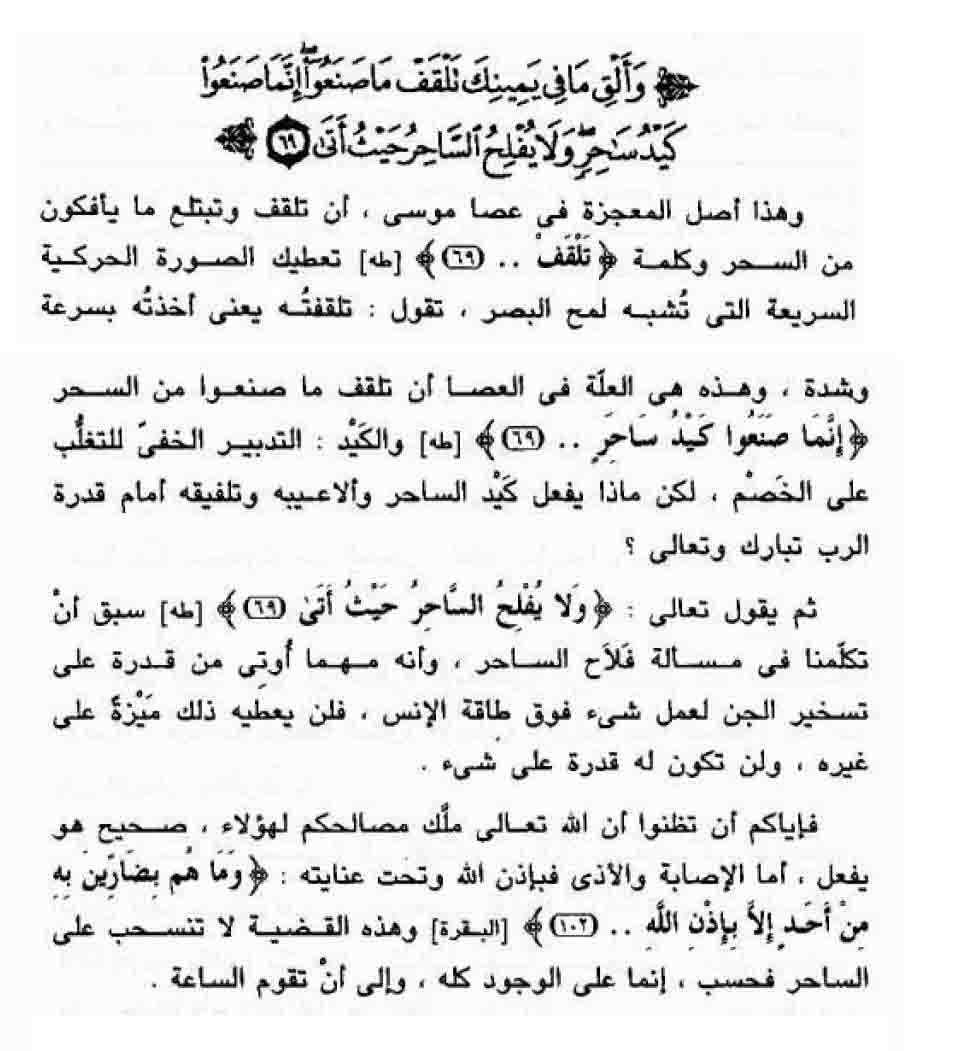 ﴿ وَأَلْقِ مَا فِي يَمِينِكَ تَلْقَفْ مَا صَنَعُوٓا۟ ۖ إِنَّمَا صَنَعُوا۟
كَيْدُ سَـٰحِرٍ ۖ وَلَا يُفْلِحُ ٱلسَّاحِرُ حَيْثُ أَتَىٰ ٦٩ ﴾
وهذا أصل المعجزة فى عصا موسى ، أن تلقف وتبتلع ما يأفكون
من السـحر وكلمـة ﴿ تَلْقَفْ .. (٦٩) ﴾ [طه] تعطيك الصـورة الحركـية
السريعة التى تُشبـه لمح البصر ، تقول : تلقفتُـه يعنى أخذتُه بسرعة
وشدة ، وهـذه هى العلّة فى العصـا أن تلقف ما صنعـوا من السـحر
﴿ إِنَّمَا صَنَعُوا كَيْدُ سَاحِرٍ .. (٦٩) ﴾ [طه] والكَيْد : التدبيـر الخفىّ للتغلُّب
على الخَصـْم ، لكن ماذا يفعل كَيْد الساحر وألاعيبه وتلفيقه أمام قدرة
الرب تبارك وتعالى ؟
ثم يقول تعالى : ﴿ وَلا يُفْلِحُ السَّاحِرُ حَيْثُ أَتَىٰ (٦٩) ﴾ [طه] سبق أنْ
تكلّمنا فى مـسـألة فَلاَح السـاحر ، وأنه مـهـما أُوتِى من قـدرة على
تسخير الجن لعمل شىء فوق طاقة الإنس ، فلن يعطيه ذلك مَيْزةً على
غيره ، ولن تكون له قدرة على شىء .
فإياكم أن تظنوا أن الله تعـالى ملَّك مصالحكم لهؤلاء ، صـحيح هو
يفعل ، أما الإصابة والأذى فبإذن الله وتحت عنايته : ﴿ وَمَا هُم بِضَارِّينَ بِهِ
مِنْ أَحَدٍ إِلاَّ بِإِذْنِ اللَّهِ .. (١٠٢) ﴾ [البـقرة] وهذه القـضيـة لا تنسـحب على
الساحر فحسب ، إنما على الوجود كله ، وإلى أنْ تقوم الساعة .